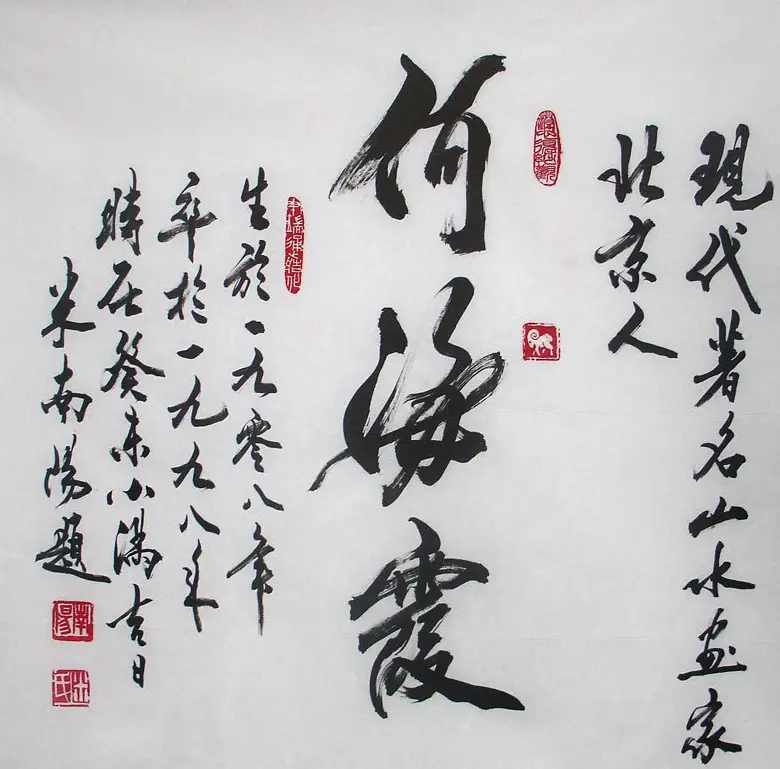 現代著名山水畫家
北京人
何海霞
生於一九零八年
卒於一九九八年
時在癸未小滿吉日
米南陽題
南陽
米氏